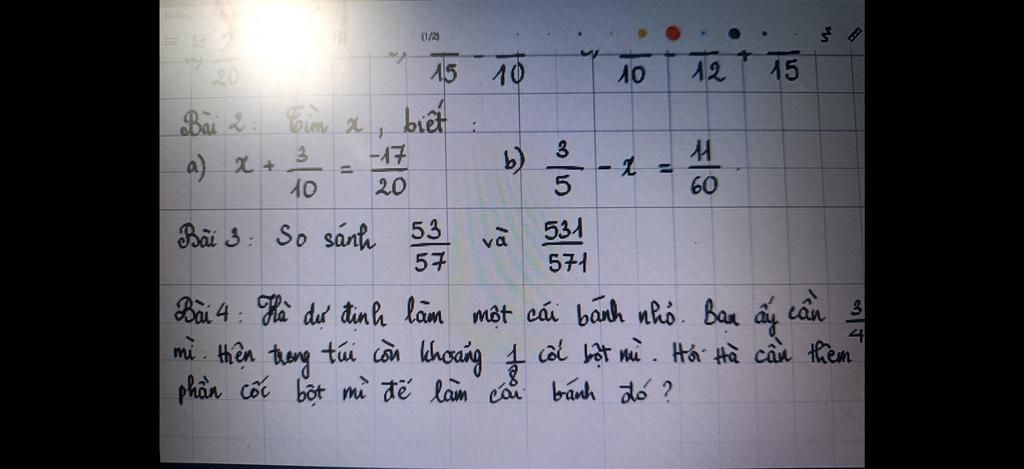 (1/2)
20 15 - 10 10 - 12 + 15
Bài 2: Tìm x, biết:
a) x + 3/10 = -17/20 b) 3/5 - x = 11/60.
Bài 3: So sánh 53/57 và 531/571
Bài 4: Hà dự định làm một cái bánh nhỏ. Bạn ấy cần 3/4
mì. Hiện trong túi còn khoảng 1/8 cốc bột mì. Hỏi Hà cần thêm
phần cốc bột mì để làm cái bánh đó?